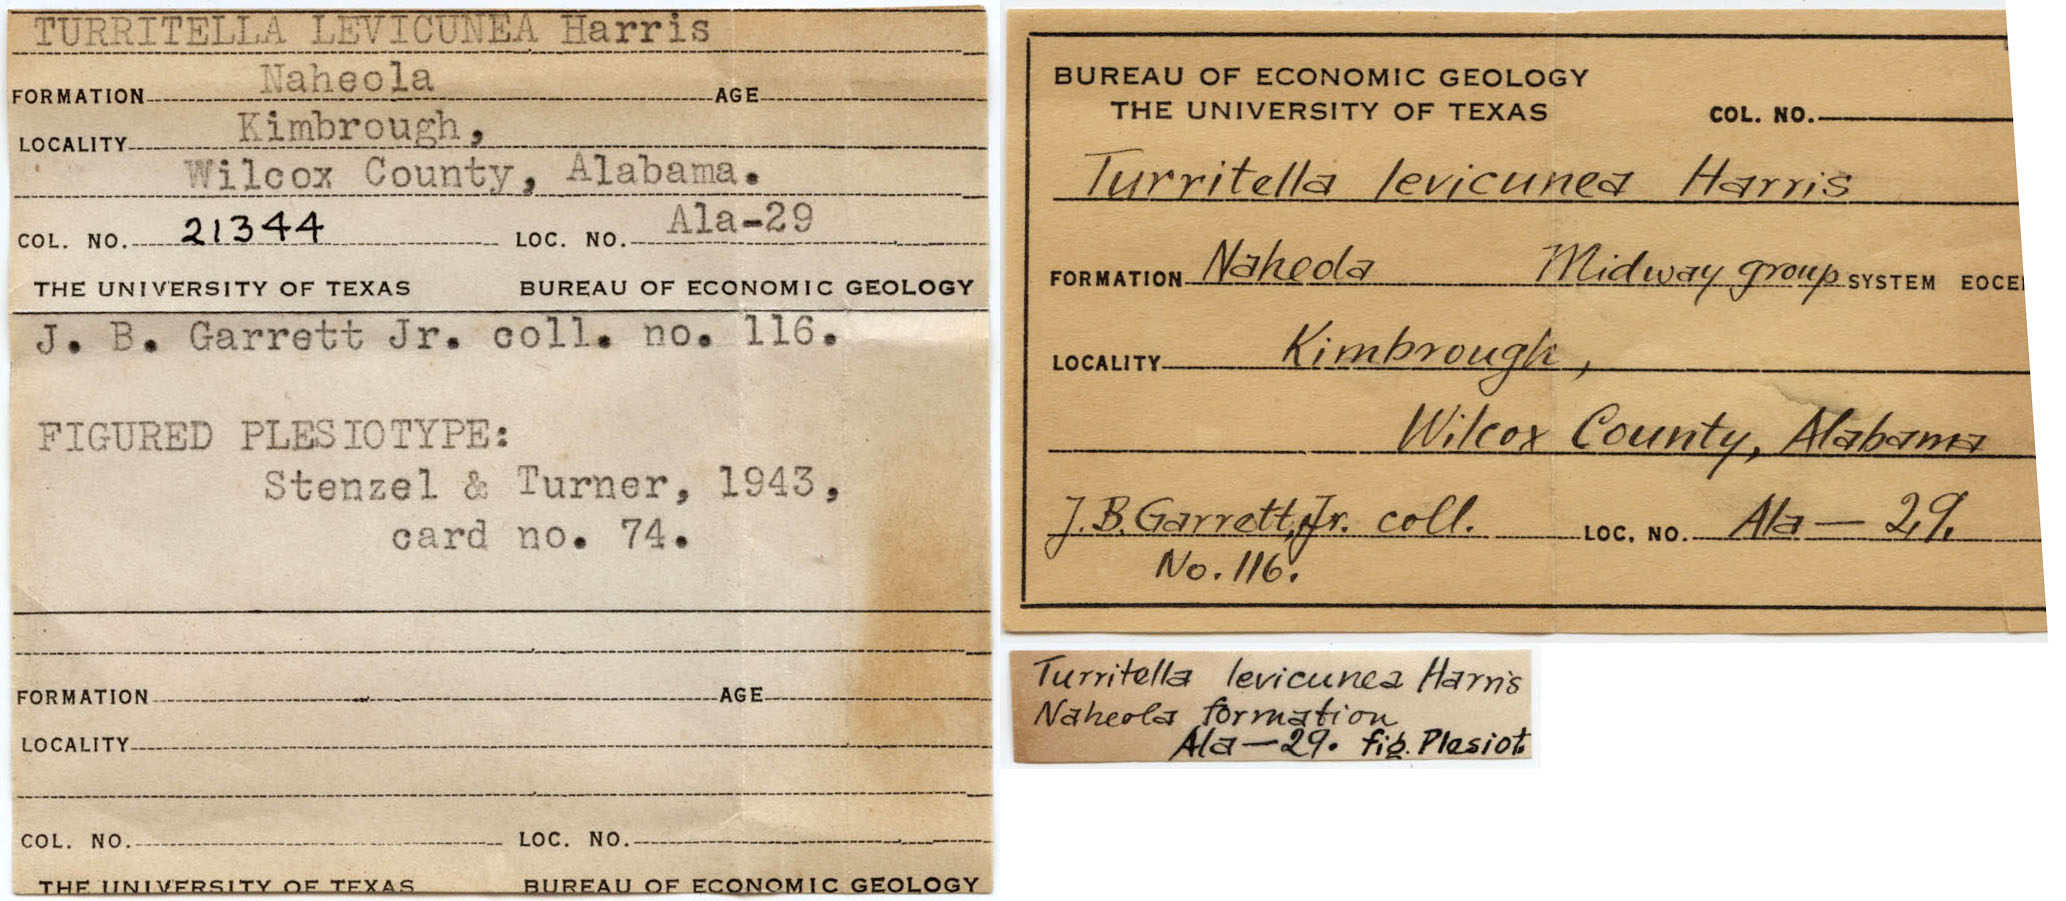 TURRITELLA LEVICUNEA Harris
FORMATION Naheola AGE
LOCALITY Kimbrough,
Wilcox County, Alabama.
COL. NO. 21344 LOC. NO. Ala-29
THE UNIVERSITY OF TEXAS BUREAU OF ECONOMIC GEOLOGY
J. B. Garrett Jr. coll. no. 116.
FIGURED PLESIOTYPE:
Stenzel & Turner, 1943,
card no. 74.
FORMATION AGE
LOCALITY
COL. NO. LOC. NO.
THE UNIVERSITY OF TEXAS BUREAU OF ECONOMIC GEOLOGY
BUREAU OF ECONOMIC GEOLOGY
THE UNIVERSITY OF TEXAS COL. NO.
Turritella levicunea Harris
FORMATION Naheola Midway group SYSTEM EOCE
LOCALITY Kimbrough,
Wilcox County, Alabama
J.B. Garrett, Jr. coll. LOC. NO. Ala — 29.
No. 116.
Turritella levicunea Harris
Naheola formation
Ala — 29. fig. Plesiot.